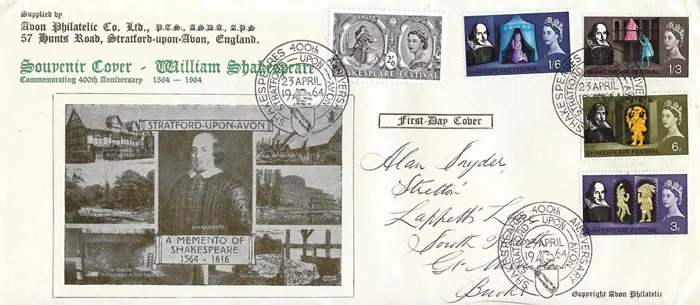 Supplied by
Avon Philatelic Co. Ltd., P.T.S., A.S.D.A., A.P.S
57 Hunts Road, Stratford-upon-Avon, England.
Souvenir Cover - William Shakespeare
Commemorating 400th Anniversary 1564 - 1964
STRATFORD-UPON-AVON
SHAKESPEARE
A MEMENTO OF
SHAKESPEARE
1564 - 1616
First Day Cover
HAMLET
2/6
SHAKESPEARE FESTIVAL
1/6
SHAKESPEARE FESTIVAL
1/3
SHAKESPEARE FESTIVAL
6d
SHAKESPEARE FESTIVAL
3d
SHAKESPEARE FESTIVAL
SHAKESPEARES 400th ANNIVERSARY
STRATFORD-UPON-AVON
23 APRIL
1964
SHAKESPEARES 400th ANNIVERSARY
STRATFORD-UPON-AVON
23 APRIL
1964
SHAKESPEARES 400th ANNIVERSARY
STRATFORD-UPON-AVON
23 APRIL
1964
Alan Snyder,
Stretton
Lappetts L
South
Gt. M
Bucks
Copyright Avon Philatelic